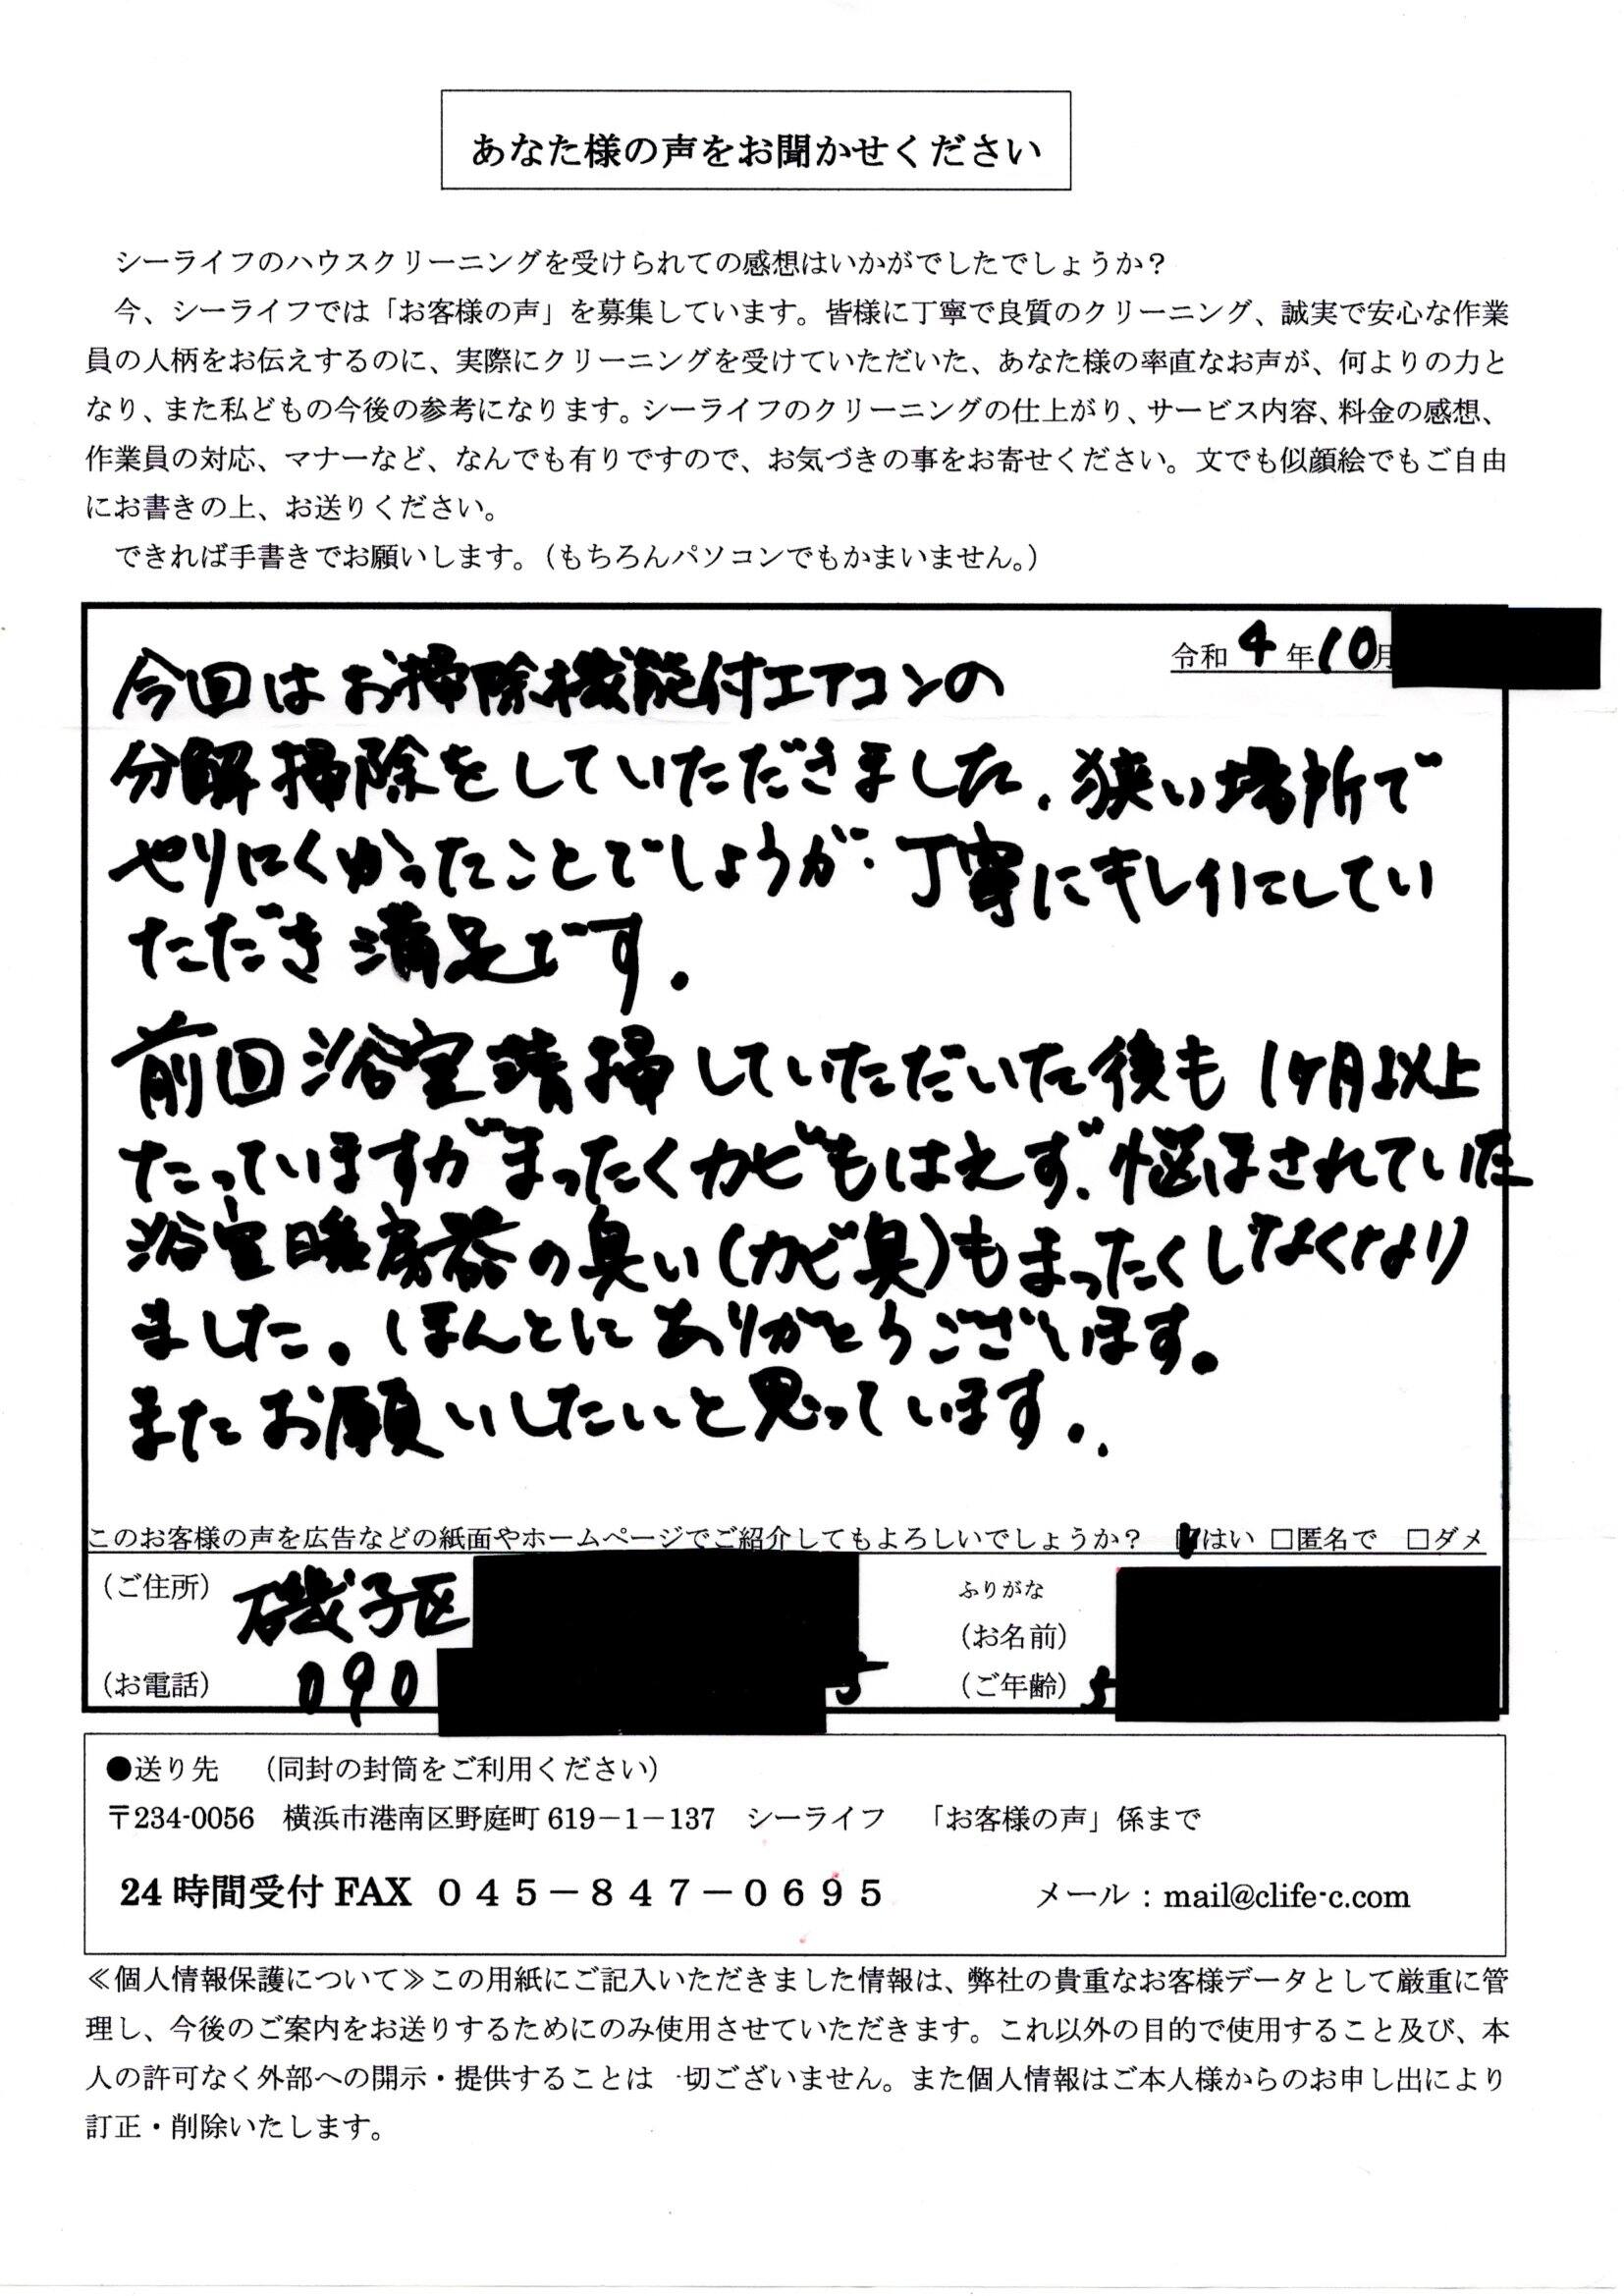 あなた様の声をお聞かせください
シーライフのハウスクリーニングを受けられての感想はいかがでしたでしょうか？
今、シーライフでは「お客様の声」を募集しています。皆様に丁寧で良質のクリーニング、誠実で安心な作業
員の人柄をお伝えするのに、実際にクリーニングを受けていただいた、あなた様の率直なお声が、何よりの力と
なり、また私どもの今後の参考になります。シーライフのクリーニングの仕上がり、サービス内容、料金の感想、
作業員の対応、マナーなど、なんでも有りですので、お気づきの事をお寄せください。文でも似顔絵でもご自由
にお書きの上、お送りください。
できれば手書きでお願いします。（もちろんパソコンでもかまいません。）
令和 4 年 10 月
今回はお掃除機能付エアコンの
分解掃除をしていただきました、狭い場所で
やりにくかったことでしょうが、丁寧にキレイにしてい
ただき満足です。
前回浴室清掃していただいた後も1ヶ月以上
たっていますがまったくカビもはえず、悩まされていた
浴室暖房器の臭い（カビ臭）もまったくしなくなり
ました。ほんとにありがとうございます。
またお願いしたいと思っています..
このお客様の声を広告などの紙面やホームページでご紹介してもよろしいでしょうか？ ☑はい □匿名で □ダメ
（ご住所） 磯子区
ふりがな
（お名前）
（お電話） 090 5
（ご年齢） 5
●送り先 （同封の封筒をご利用ください）
〒234-0056 横浜市港南区野庭町 619－1－137 シーライフ 「お客様の声」係まで
24 時間受付 FAX ０４５－８４７－０６９５ メール：mail@clife-c.com
≪個人情報保護について≫この用紙にご記入いただきました情報は、弊社の貴重なお客様データとして厳重に管
理し、今後のご案内をお送りするためにのみ使用させていただきます。これ以外の目的で使用すること及び、本
人の許可なく外部への開示・提供することは一切ございません。また個人情報はご本人様からのお申し出により
訂正・削除いたします。